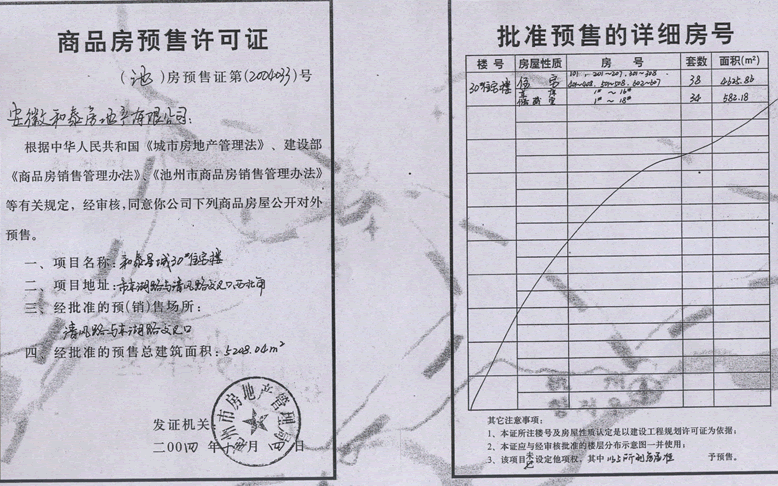 商品房预售许可证
(池)房预售证第(2004033)号
安徽和泰房地产有限公司:
根据中华人民共和国《城市房地产管理法》、建设部
《商品房销售管理办法》、《池州市商品房销售管理办法》
等有关规定，经审核，同意你公司下列商品房屋公开对外
预售。
一、项目名称:和泰星城30#住宅楼
二、项目地址:市东湖路与清风路交叉口西北角
三、经批准的预(销)售场所:
清风路与东湖路交叉口
四、经批准的预售总建筑面积:5208.04m²
发证机关
二00四年十 月 日
池州市房地产管理局
批准预售的详细房号
楼号 房屋性质 房号 套数 面积(m²)
30#住宅楼 住宅 101、201~207、301~308 38 4625.86
401~408、501~508、602~607
车库 1#~16#
储藏室 1#~18# 34 582.18
其它注意事项:
1、本证所注楼号及房屋性质认定是以建设工程规划许可证为依据;
2、本证应与经审核批准的楼层分布示意图一并使用;
3、该项目未设定他项权,其中以上所列房屋准予预售。